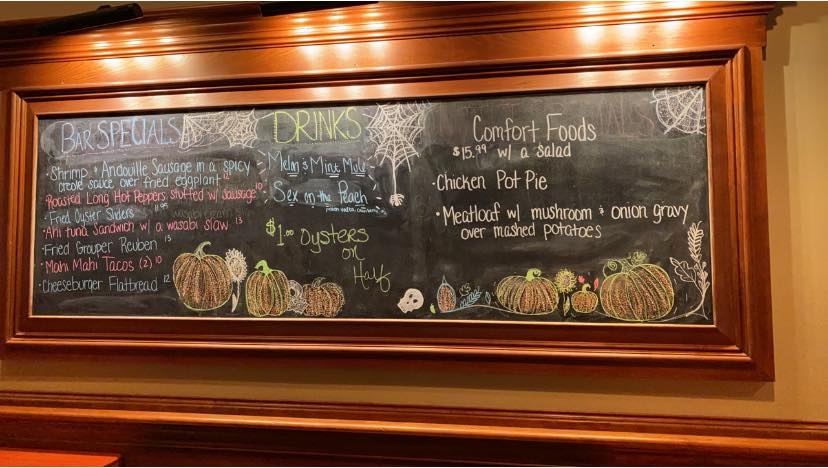 BAR SPECIALS
· Shrimp & Andouille Sausage in a spicy
creole sauce over fried eggplant 12
· Roasted Long Hot Peppers stuffed w/ sausage 10
· Fried Oyster Sliders 11.99
· Ahi tuna Sandwich w/ a wasabi slaw 13
· Fried Grouper Reuben 13
· Mahi Mahi Tacos (2) 10
· Cheeseburger Flatbread 12
DRINKS
Melm's Mint Mule
Sex on the Peach
$1.00 Oysters
on
Half
Comfort Foods
$15.99 w/ a salad
· Chicken Pot Pie
· Meatloaf w/ mushroom & onion gravy
over mashed potatoes